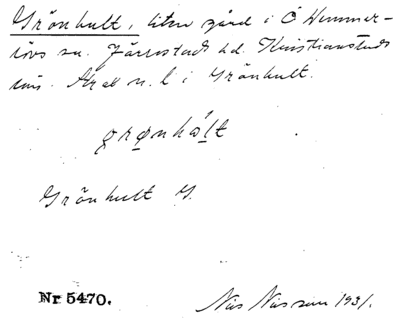 Grönhult, liten gård i Ö Hemmer-
lövs sn. Järrestads hd. Kristianstads
län. Akut n. l i Grönhult.
grønhølt
Grönhult G.
Nr 5470.
Nils Nilsson 1931.